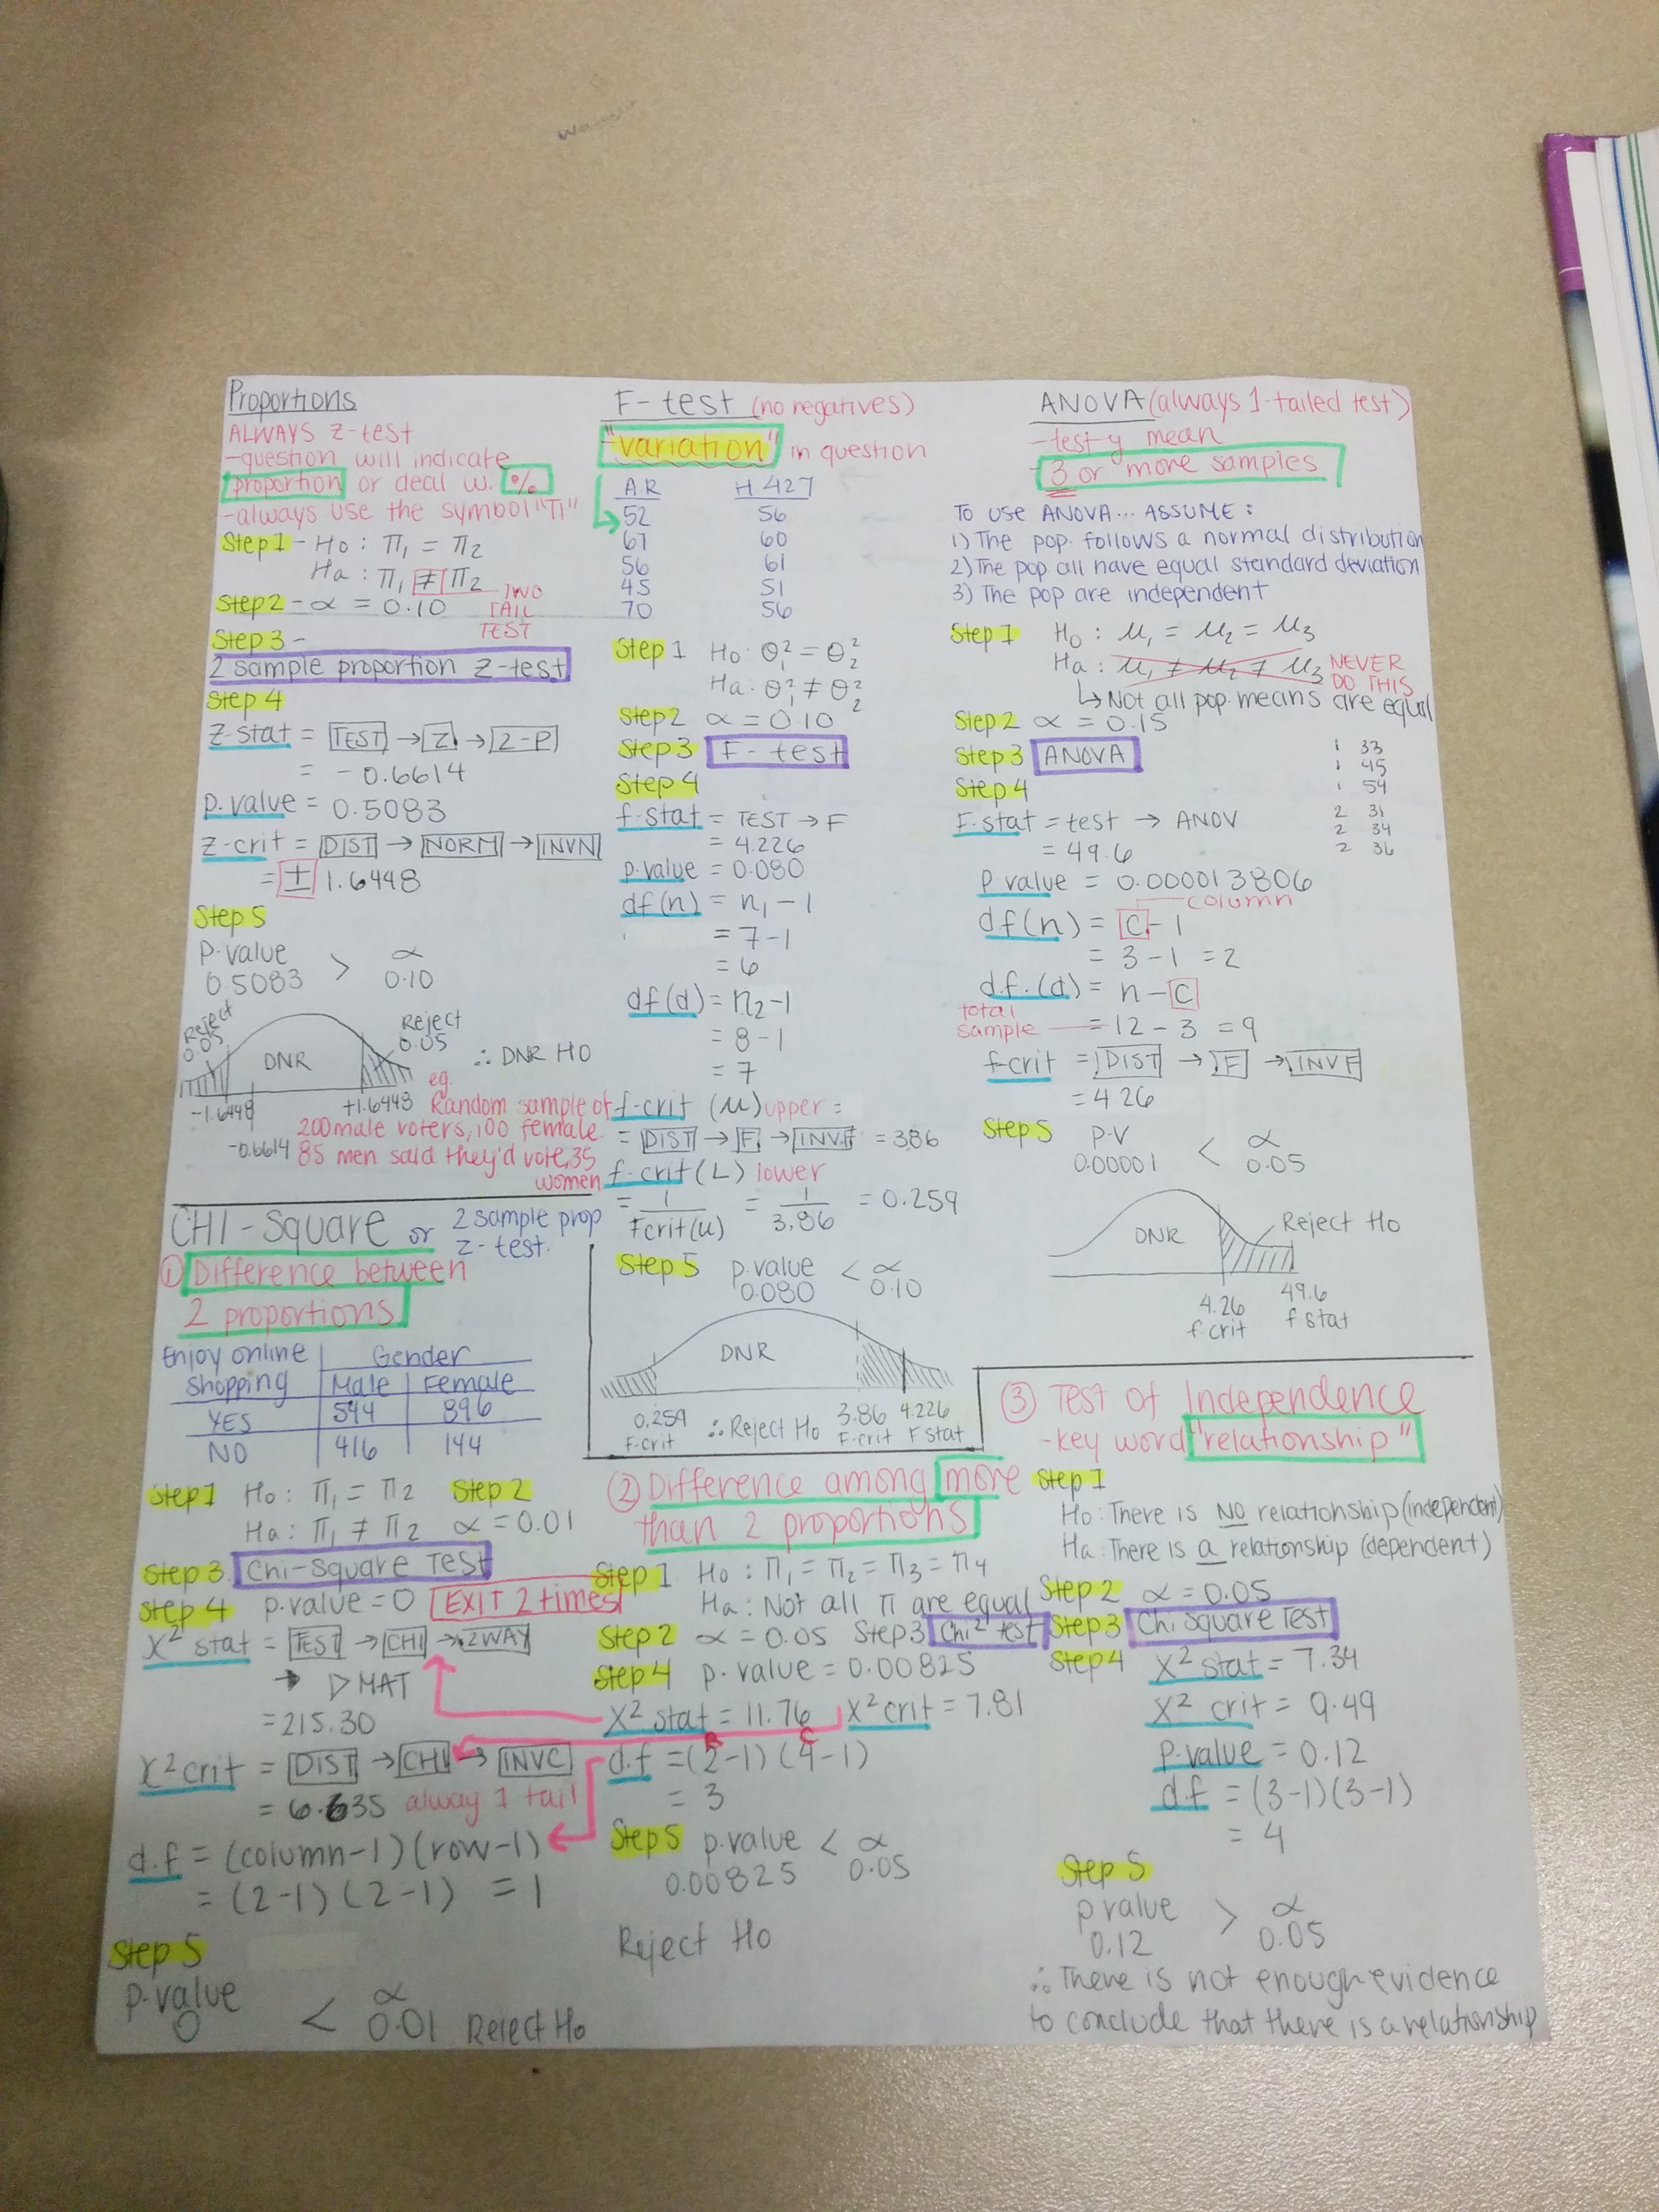 Proportions
ALWAYS Z-test
-question will indicate
proportion or deal w. %
-always use the symbol "π"
Step 1 - Ho: π₁ = π₂
Ha: π₁ ≠ π₂
TWO
TAIL
TEST
Step 2 - α = 0.10
Step 3 -
2 sample proportion Z-test
Step 4
Z-stat = TEST → Z → 2-P
= -0.6614
p.value = 0.5083
Z-crit = DIST → NORM → INVN
= ± 1.6448
Step 5
P.value > α
0.5083 0.10
Reject
0.05
DNR
Reject
0.05
∴ DNR HO
-1.6448
+1.6448
-0.6614
eg.
Random sample of
200 male voters, 100 female
85 men said they'd vote, 35
women
F-test (no negatives)
"variation" in question
A.R H.427
52 56
67 60
56 61
45 51
70 56
Step 1 Ho: θ₁² = θ₂²
Ha: θ₁² ≠ θ₂²
Step 2 α = 0.10
Step 3 F-test
Step 4
f.stat = TEST → F
= 4.226
p.value = 0.080
df(n) = n₁ - 1
= 7-1
= 6
df(d) = n₂-1
= 8-1
= 7
f-crit (u) upper =
= DIST → F → INVF = 3.86
f-crit (L) lower
= 1/Fcrit(u) = 1/3.86 = 0.259
Step 5 p.value < α
0.080 0.10
DNR
0.259 ∴ Reject Ho 3.86 4.226
F-crit F-crit F stat
ANOVA (always 1-tailed test)
-test y mean
- 3 or more samples
To use ANOVA... ASSUME:
1) The pop. follows a normal distribution
2) The pop all have equal standard deviation
3) The pop are independent
Step 1 Ho: μ₁ = μ₂ = μ₃
Ha: μ₁ ≠ μ₂ ≠ μ₃ NEVER
DO THIS
↳ Not all pop. means are equal
Step 2 α = 0.15
Step 3 ANOVA
Step 4
1 33
1 45
1 54
2 31
2 34
2 36
F.stat = test → ANOV
= 49.6
p value = 0.000013806
column
df(n) = C - 1
= 3-1 = 2
d.f.(d) = n - C
total
sample
= 12 - 3 = 9
f-crit = DIST → F → INVF
= 4.26
Step 5 P.V < α
0.00001 0.05
DNR
Reject Ho
4.26 49.6
f crit f stat
CHI-Square or 2 sample prop
Z-test.
① Difference between
2 proportions
Enjoy online Gender
Shopping Male Female
YES 544 896
NO 416 144
Step 1 Ho: π₁ = π₂ Step 2
Ha: π₁ ≠ π₂ α = 0.01
Step 3 Chi-Square Test
Step 4 p.value = 0 EXIT 2 times
X² stat = TEST → CHI → 2WAY
→ ▷MAT
= 215.30
X² crit = DIST → CHI → INVC
= 6.635 alway 1 tail
d.f = (column-1)(row-1)
= (2-1)(2-1) = 1
Step 5
p.value < α
0 0.01 Reject Ho
② Difference among more
than 2 proportions
Step 1 Ho: π₁ = π₂ = π₃ = π₄
Ha: Not all π are equal
Step 2 α = 0.05 Step 3 Chi² test
Step 4 p.value = 0.00825
X² stat = 11.76 X² crit = 7.81
R C
d.f = (2-1)(4-1)
= 3
Step 5 p.value < α
0.00825 0.05
Reject Ho
③ Test of Independence
-key word "relationship"
Step 1
Ho: There is NO relationship (independent)
Ha: There is a relationship (dependent)
Step 2 α = 0.05
Step 3 Chi Square Test
Step 4 X² stat = 7.34
X² crit = 9.49
p.value = 0.12
d.f = (3-1)(3-1)
= 4
Step 5
p value > α
0.12 0.05
∴ There is not enough evidence
to conclude that there is a relationship